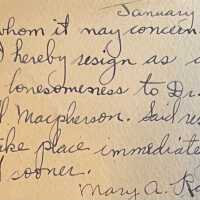 January
whom it may concern
I hereby resign as a
lonesomeness to Dr.
Macpherson. Said res
take place immediate
sooner.
Mary A.